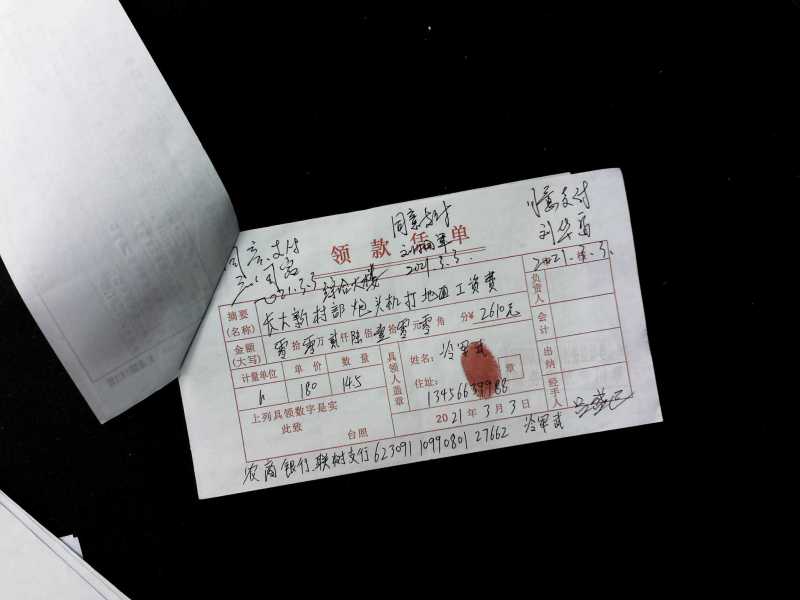 同意支付
2021.3.3
同意支付
2021.3.3.
同意支付
刘华
2021.3.3.
领款凭单
综合大楼
摘要
(名称)
长大新村部炮头机打地面工资费
负责人
金额
(大写)
零拾零万贰仟陆佰壹拾零元零角 分¥2610元
会计
计量单位 单价 数量
h 180 14.5
具领人盖章
姓名:冷军武
章
住址:
13456639988
出纳
上列具领数字是实
此致
台照
2021年3月3日
经手人
农商银行联树支行 623091 10990801 27662 冷军武